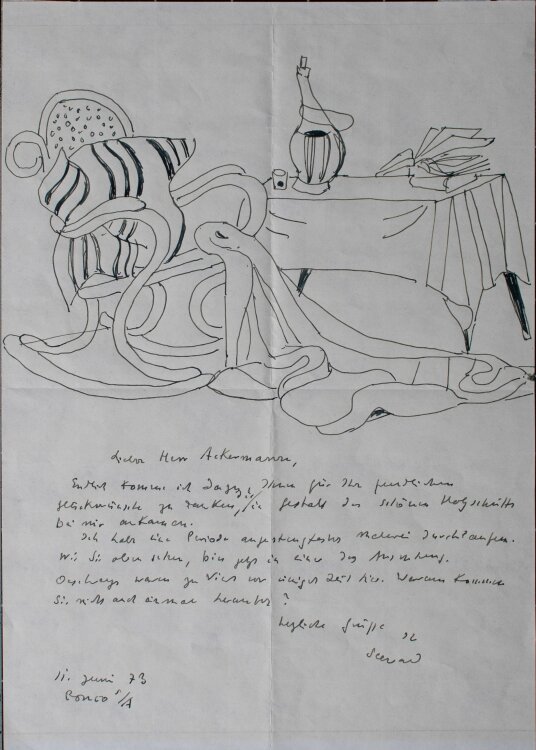 Lieber Herr Ackermann,
Endlich komme ich dazu, Ihnen für Ihre freundlichen
Glückwünsche zu danken, die in Gestalt des schönen Holzschnitts
bei mir ankamen.
Ich habe eine Periode angestrengtester Malerei durchlaufen.
Wie Sie oben sehen, bin jetzt in einer der
waren zu viert vor einiger Zeit hier. Warum kommen
Sie nicht auch einmal herunter?
Herzliche Grüsse
Ihr
11. Juni 73
Ronco s/A